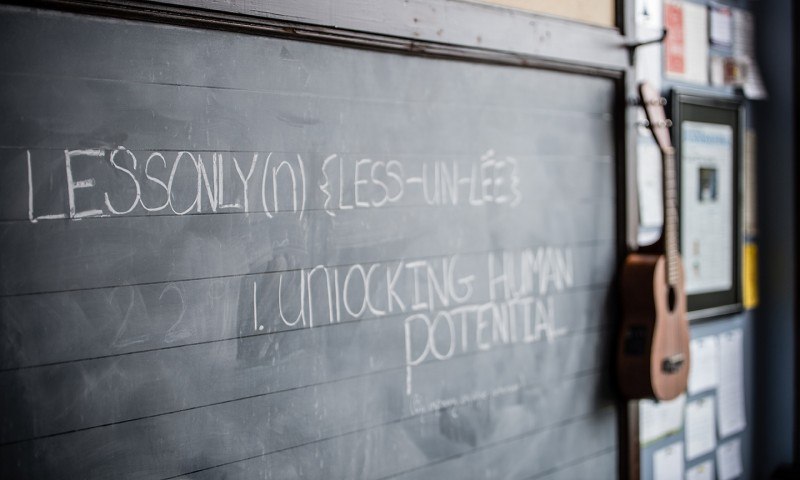 LESSONLY(n) {LESS-UN-LÉE}
1. UNLOCKING HUMAN
POTENTIAL